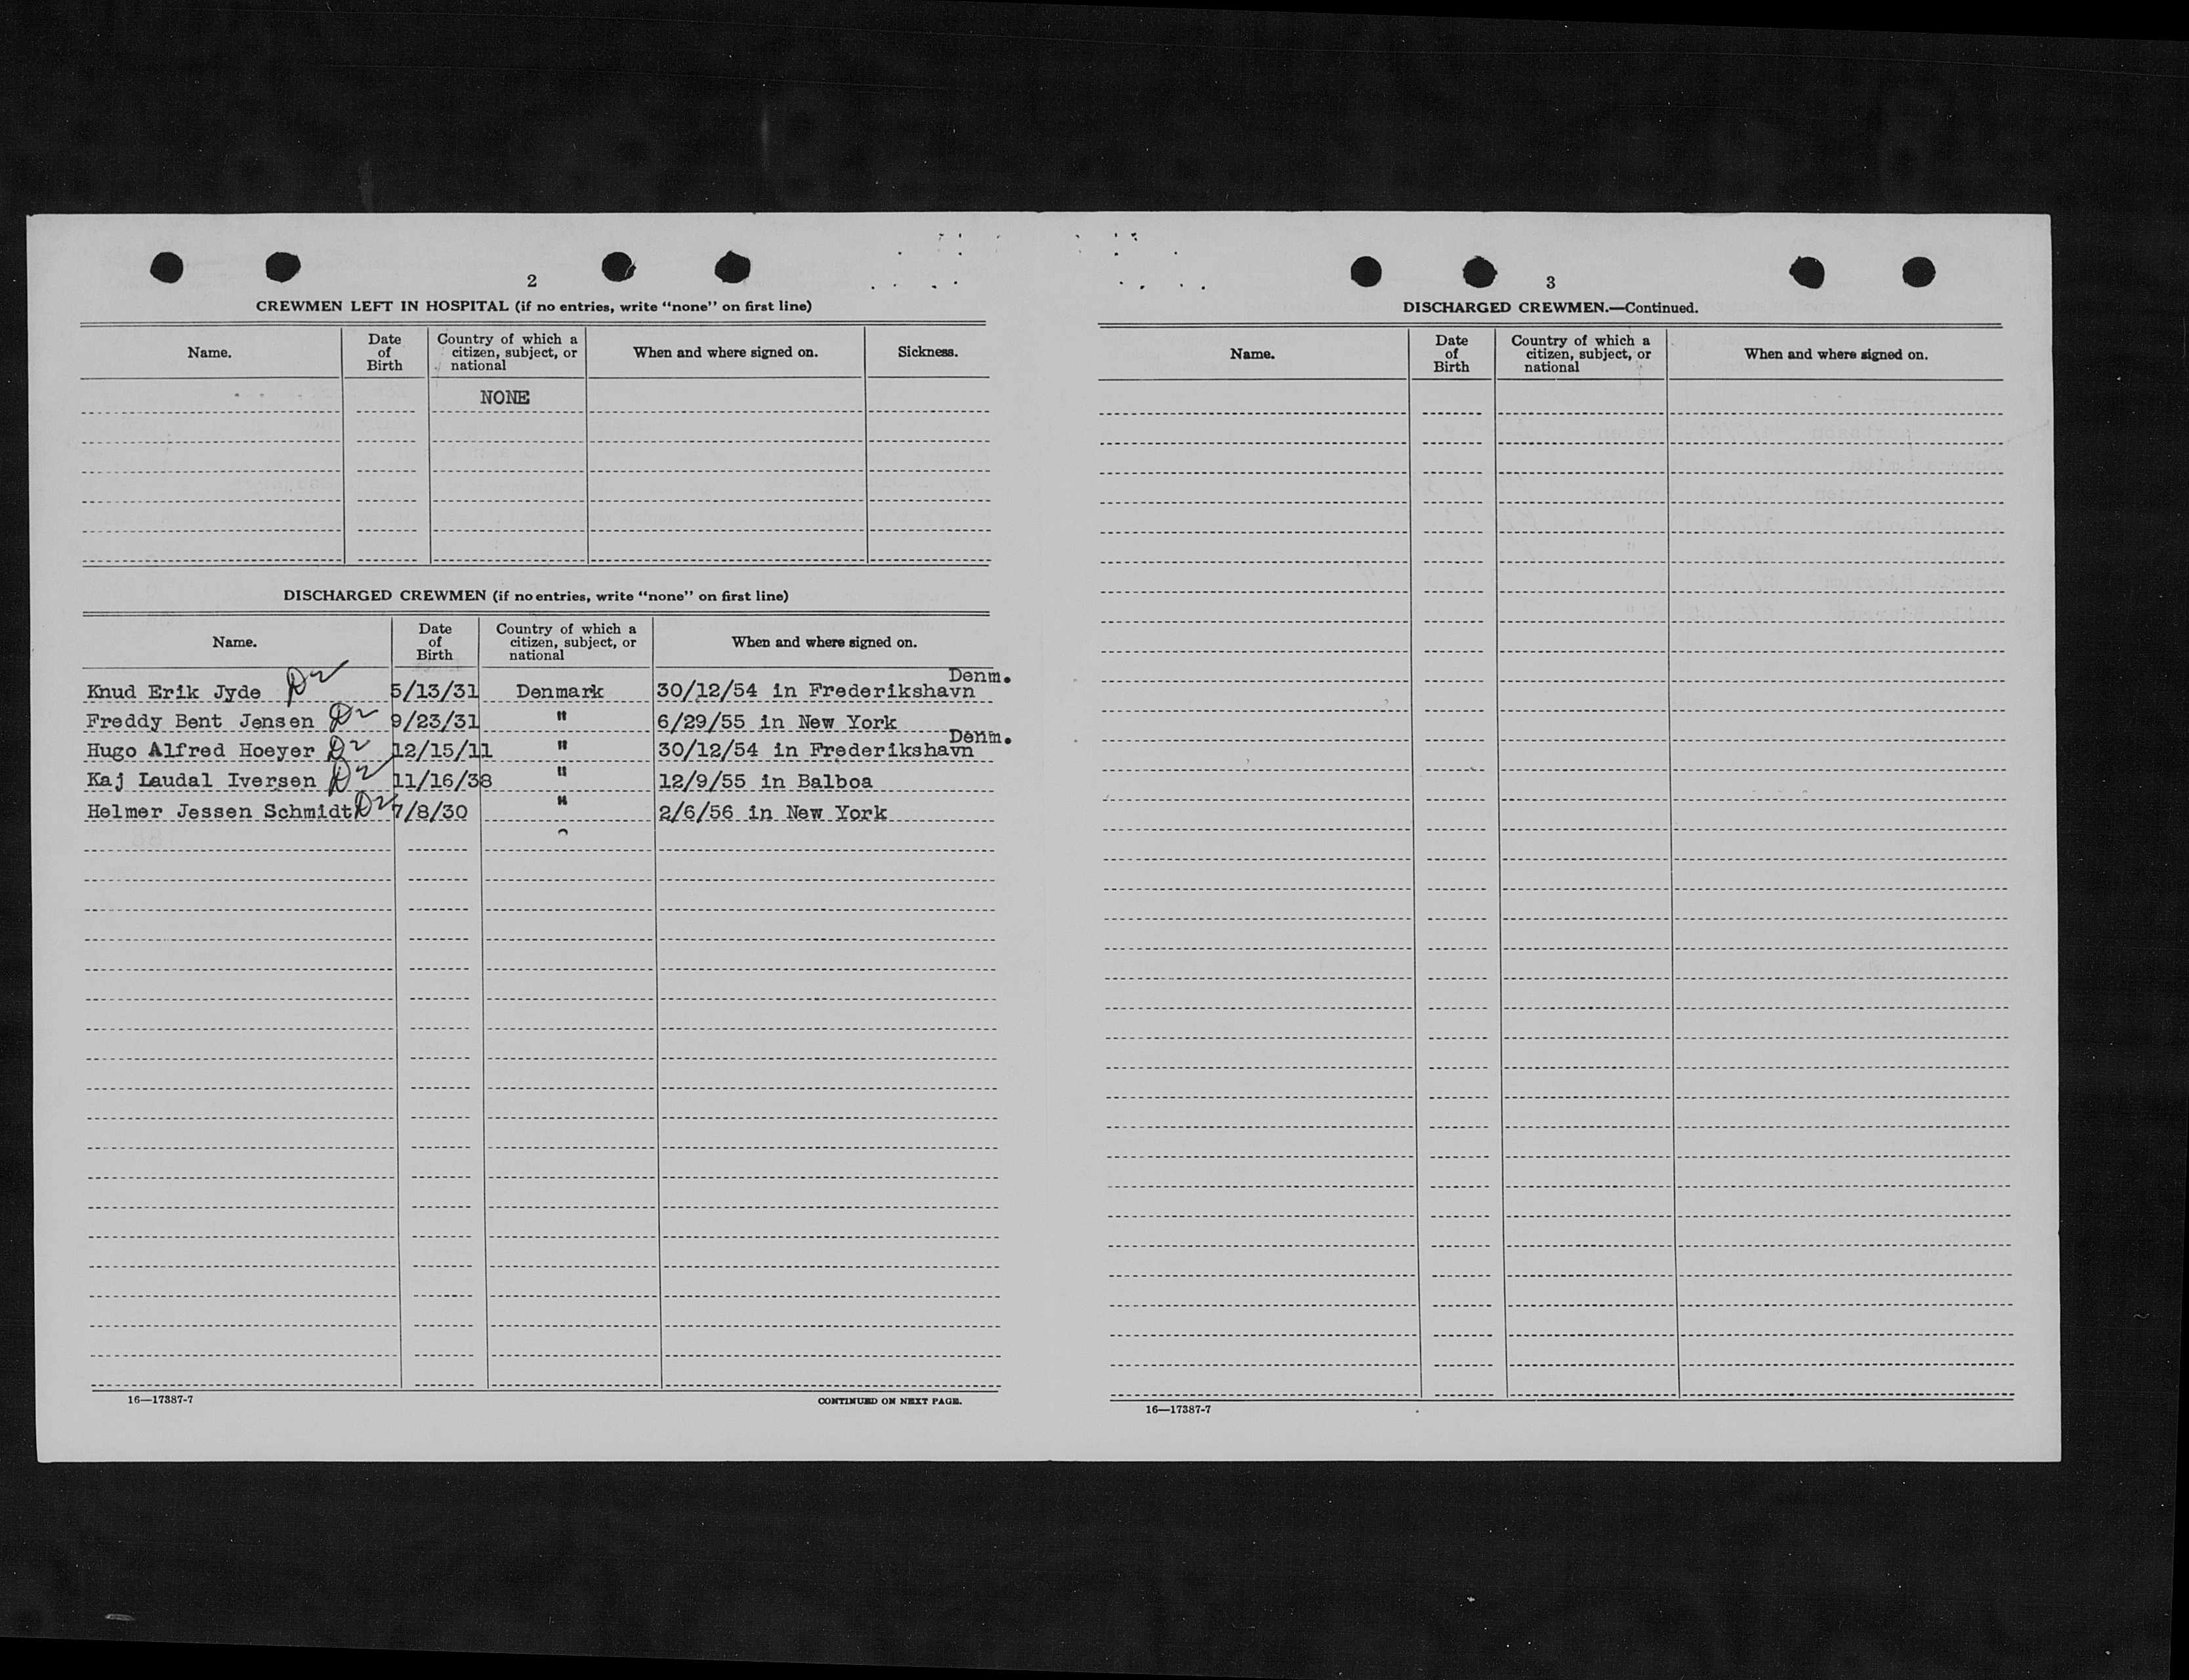 2
CREWMEN LEFT IN HOSPITAL (if no entries, write “none” on first line)
Name. Date of Birth Country of which a citizen, subject, or national When and where signed on. Sickness.
NONE
DISCHARGED CREWMEN (if no entries, write “none” on first line)
Name. Date of Birth Country of which a citizen, subject, or national When and where signed on.
Knud Erik Jyde 5/13/31 Denmark 30/12/54 in Frederikshavn Denm.
Freddy Bent Jensen 9/23/31 " 6/29/55 in New York
Hugo Alfred Hoeyer 12/15/11 " 30/12/54 in Frederikshavn Denm.
Kaj Laudal Iversen 11/16/38 " 12/9/55 in Balboa
Helmer Jessen Schmidt 7/8/30 " 2/6/56 in New York
16—17387-7 CONTINUED ON NEXT PAGE.
3
DISCHARGED CREWMEN.—Continued.
Name. Date of Birth Country of which a citizen, subject, or national When and where signed on.
16—17387-7